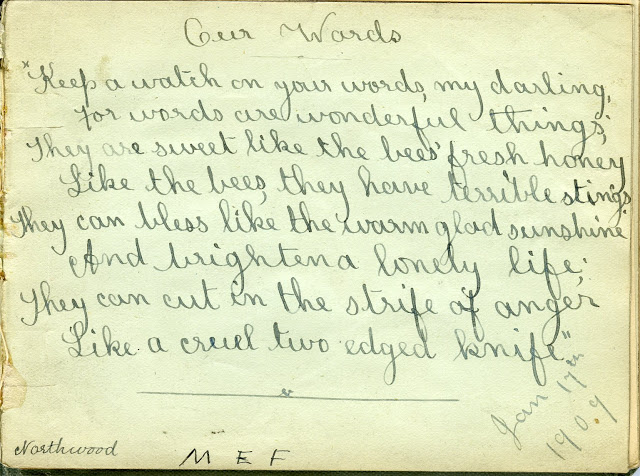 Our Words
"Keep a watch on your words, my darling,
For words are wonderful things;
They are sweet like the bees' fresh honey
Like the bees, they have terrible stings
They can bless like the warm glad sunshine
And brighten a lonely life;
They can cut in the strife of anger
Like a cruel two edged knife."
Jan 17th
1909
Northwood
M E F